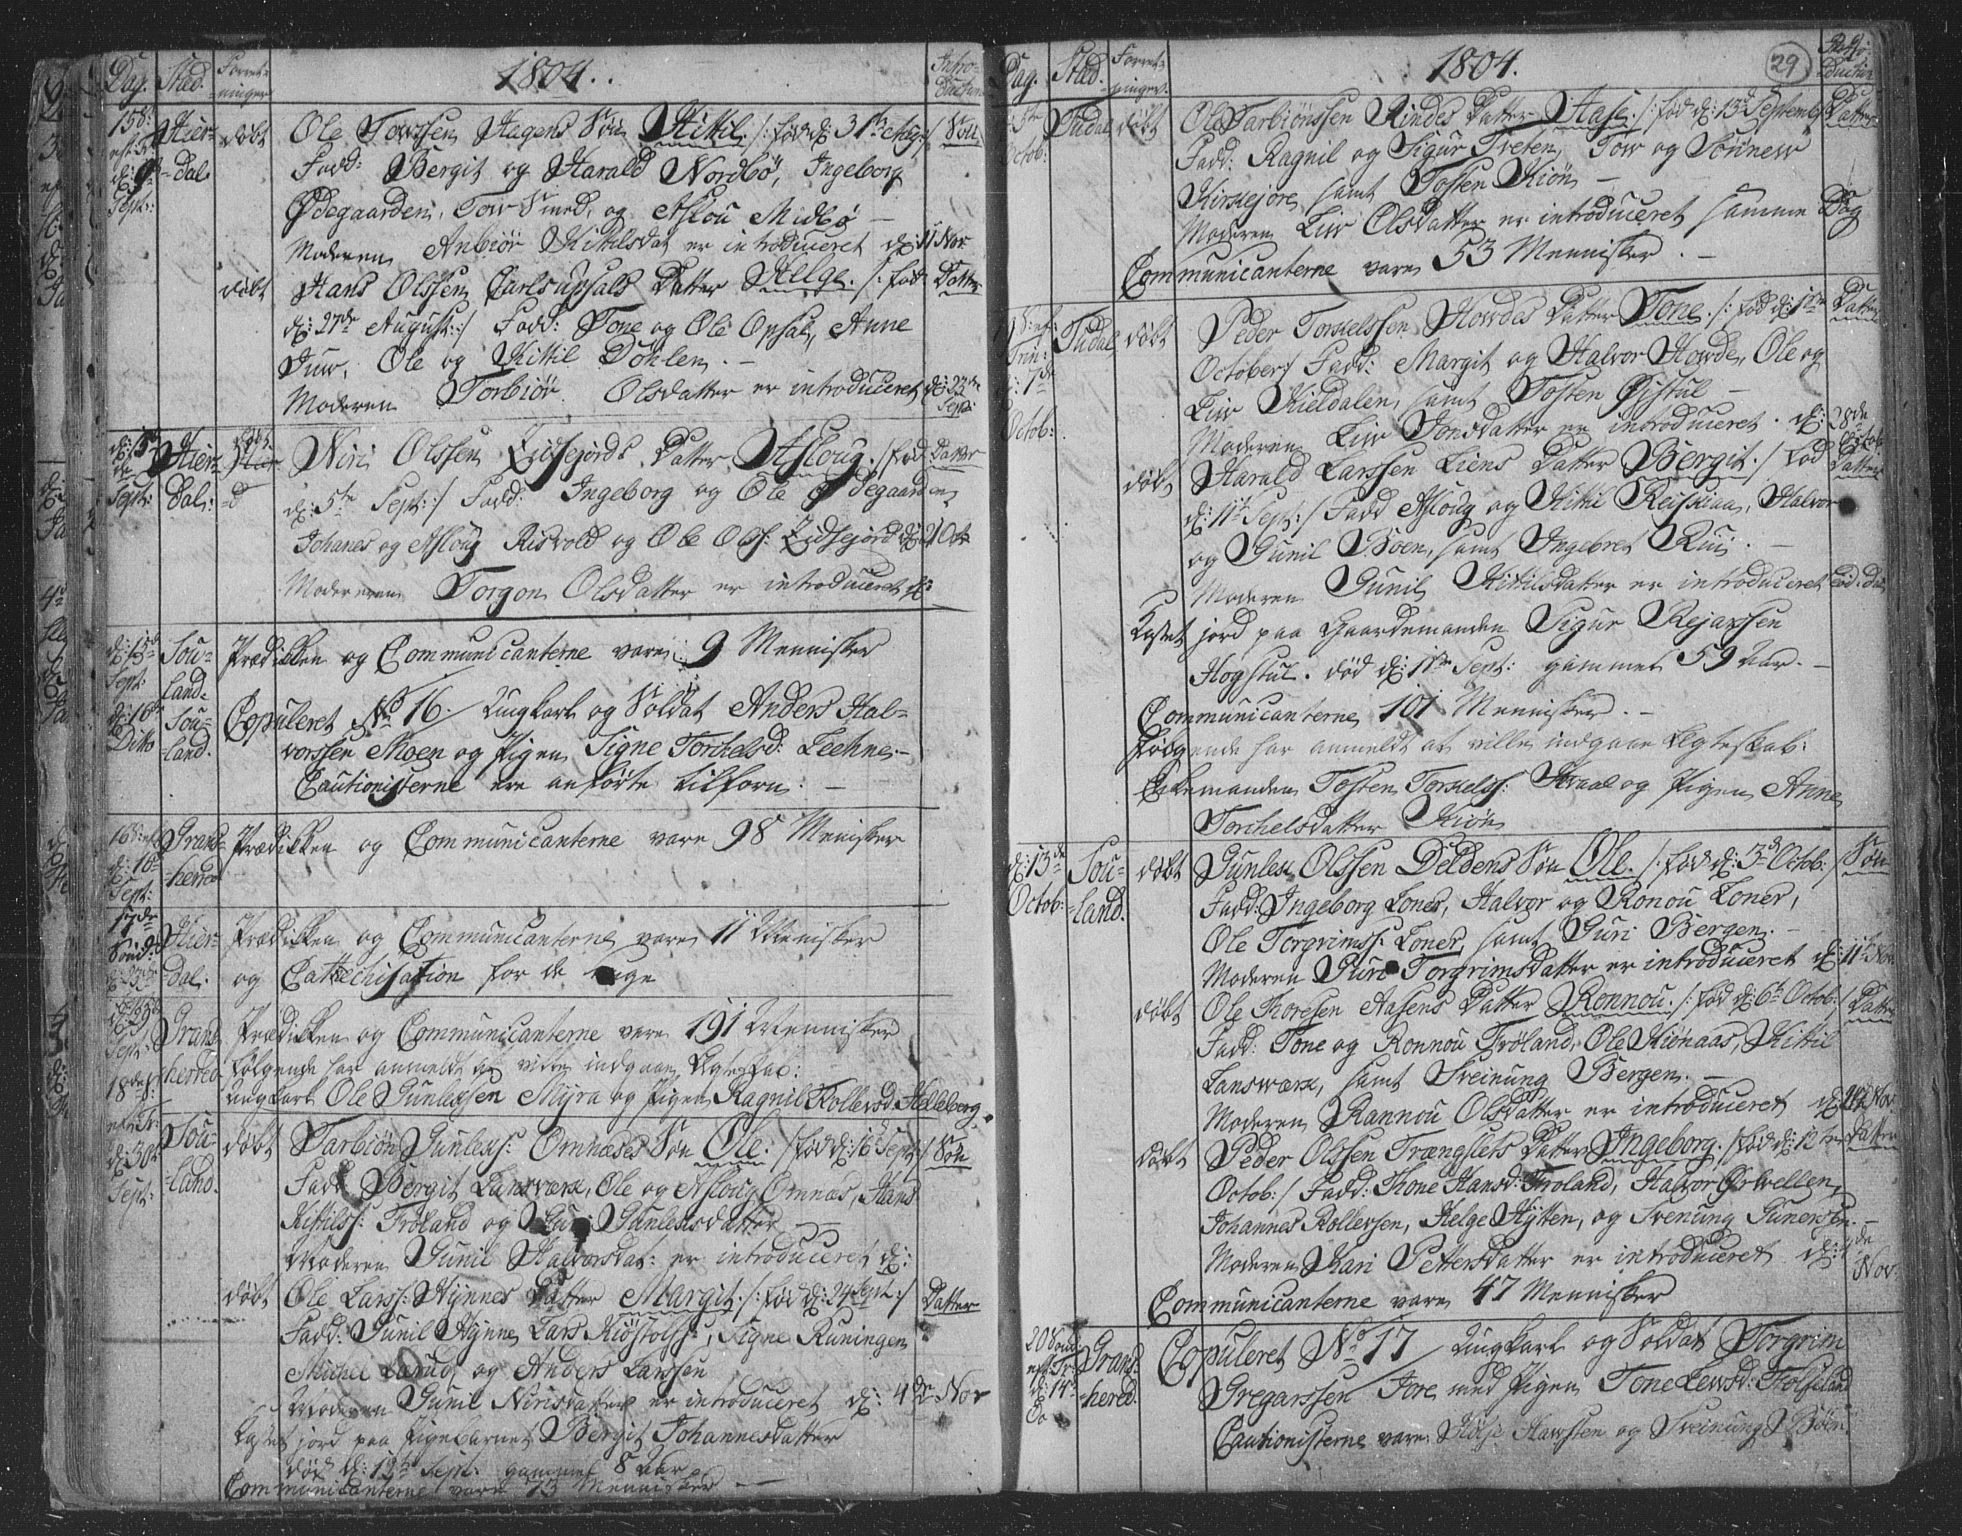 Dag. Stad. Forret-ninger 1804. Intro-ductur
15de Hier-dal døbt Ole Towssen Hagens Søn Kittil /: fød d: 31te Aug: Søn
d: 9de Sept: Fadd: Bergit og Harald Nordbø, Ingeborg
Ødegaarden, Tow Smed, og Aslou Midbø —
Moderen Anbiør Kittilsdat er introduceret d: 11 Nov
døbt Hans Olssen Carlsupsals Datter Helge /: fød Datter
d: 27de August:/ Fadd: Tone og Ole Opsal, Anne
Juw, Ole og Kittil Døhlen. —
Moderen Torbiør Olsdatter er introduceret d: 23de Sept:
Sept: Hier-dal: døbt Niri Olssen Eidsfjords Datter Asloug /: fød Datter
d: 5te Sept:/ Fadd: Ingeborg og Ole Ødegaarden
Johanes og Asloug Risvold og Ole Ols: Eidsfjord
Moderen Torgon Olsdatter er introduceret d: 21 Oct
d: 15de Sept: Sou-land. Prædikken og Communicanterne vare 9 Mennisker
d: 16de Ditto Sou-land. Copuleret No 16. Ungkarl og Soldat Anders Hal-
vorssen Moen og Pigen Signe Torchelsd: Leehne. —
Cautionisterne ere anførte tilforn. —
d: 16de Sept: Gran-herred Prædikken og Communicanterne vare 98 Mennisker
17de Sønd: d: 23de Hier-dal: Prædikken og Communicanterne vare 11 Mennisker
og Cattechisation for de unge
Sept: Gran-herred Prædikken og Communicanterne vare 191 Mennisker
Følgende har anmeldt at ville indgaae Ægteskab:
Ungkarl Ole Gunlexsen Myra og Pigen Ragnil Rollevsd Helleberg.
18de ef: Tr: d: 30te Sept: Sou-land. døbt Tarbiøn Gunlexs: Omnæses Søn Ole. /: fød d: 16 Sept:/ Søn
Fadd: Bergit Lansværk, Ole og Asloug Omnæs, Hans
Kittilss: Frøland og Guri Gunleksdatter —
Moderen Gunil Halvorsdat: er introduceret d:
døbt Ole Larss: Hynnes Datter Margit. /: fød d: 24 Sept:/ Datter
Fadd: Gunil Hynne, Lars Kiøstolfs:, Signe Runingen
Michel Lærud, og Anders Larssen
Moderen Gunil Nirisdatter er introduceret d: 4de Nov
Kastet jord paa Pigebarnet Bergit Johannesdatter
død d: 19de Sept: gammel 8 Aar
Communicanterne vare 73 Mennisker —
Dag. Stad. Forret-ninger. 1804. 29
Octob: Tudal døbt Ole Tarbiønssen Rindes Datter Aase. /: fød d: 13de September Datter
Fadd: Ragnil og Sigur Tveten, Tow og Sønnew
Kirkejore, samt Tosten Kiøn —
Moderen Liw Olsdatter er introduceret samme Dag
Communicanterne vare 53 Mennisker. —
d: 7de Octob: Tudal døbt Peder Torkelssen Howdes Datter Tone. /: fød d: 1te Datter
October:/ Fadd: Margit og Halvor Howde, Ole og
Liw Kieldalen, samt Tosten Øistul —
Moderen Liw Jonsdatter er introduceret. d: 28de Octob:
døbt Harald Larssen Liens Datter Bergit. /: fød Datter
d: 11te Sept:/ Fadd Asloug og Kittil Reiskiaa, Halvor
og Gunil Boen, samt Ingebret Rui. —
Moderen Gunil Kittilsdatter er introduceret
Kastet jord paa Gaardemanden Sigur Rejarssen
Hogstul. død d: 11te Sept: gammel 59 Aar. —
Communicanterne 101 Mennisker. —
Følgende har anmeldt at ville indgaae Ægteskab:
Enkemanden Tosten Torkelss: Kraal og Pigen Anne
Torchelsdatter Kiøn
d: 13de Octob: Sou-land. døbt Gunlex Olssen Deldens Søn Ole. /: fød d: 3de Octob:/ Søn
Fadd: Ingeborg Loner, Halvor og Ronou Loner,
Ole Torgrimss: Loner, samt Guri Bergen. —
Moderen Guri Torgrimsdatter er introduceret d: 11te Nov
døbt Ole Thoresen Aasens Datter Ronnou. /: fød d: 6te Octob:/ Datter
Fadd: Tone og Ronnou Frøland, Ole Kiønaas, Kittil
Lansværk, samt Sveinung Bergen. —
Moderen Rannou Olsdatter er introduceret d: Nov:
døbt Peder Olssen Trænglets Datter Ingeborg. /: fød d: 12te Datter
Octob:/ Fadd: Thone Hansd: Frøland, Halvor Ørvellen,
Johannes Rollevsen, Helge Hytten, og Svenung Gunersen. —
Moderen Kari Pettersdatter er introduceret d: de Nov:
Communicanterne vare 47 Mennisker
20 Sønd: eft: Tr: d: 14de Do Gran-herred. Copuleret No 17 Ungkarl og Soldat Torgrim
Gregarssen Jore med Pigen Tone Lewsd: Folseland
Cautionisterne vare Kølje Hawsten og Sveinung Bøen